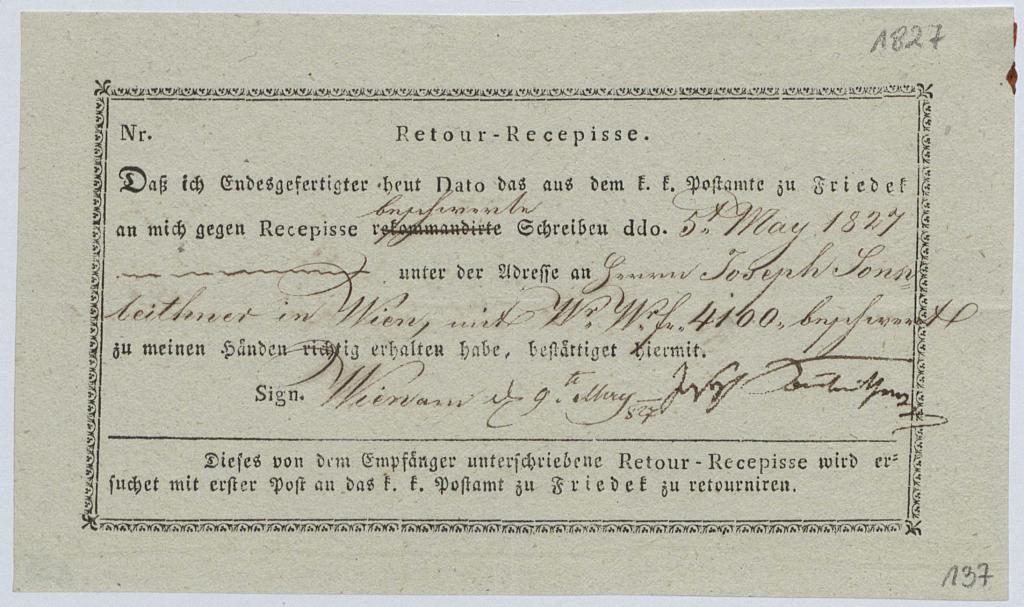 1827
Nr. Retour-Recepisse.
Daß ich Endesgefertigter heut Dato das aus dem k. k. Postamte zu Friedek
beschwerte
an mich gegen Recepisse rekommandirte Schreiben ddo. 5t May 1827
unter der Adresse an Herrn Joseph Sonn
leithner in Wien, mit Wr. Wr. fr. 4100 beschwert
zu meinen Händen richtig erhalten habe, bestättiget hiermit.
Sign. Wien am 9th May
827
Dieses von dem Empfänger unterschriebene Retour-Recepisse wird er-
suchet mit erster Post an das k. k. Postamt zu Friedek zu retourniren.
137